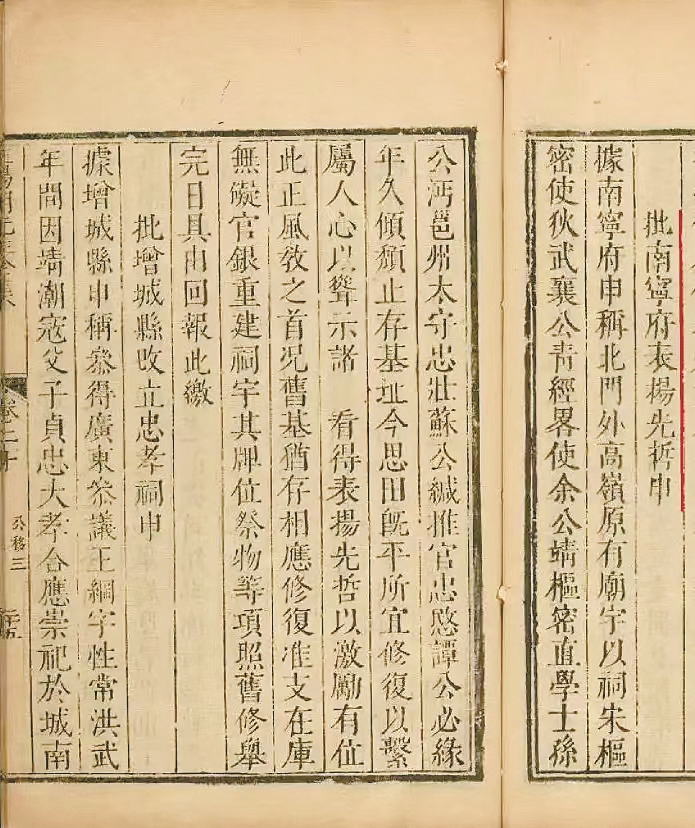 批南寧府表揚先哲申
據南寧府申稱北門外高嶺原有廟宇以祠宋樞
密使狄武襄公青經畧使余公靖樞密直學士孫
公沔邕州太守忠壯蘇公緘推官忠愍譚公必緣
年久傾頹止存基址今思田旣平所宜修復以繫
屬人心以聳示諸 看得表揚先哲以激勵有位
此正風敎之首况舊基猶存相應修復准支在庫
無礙官銀重建祠宇其牌位祭物等項照舊修舉
完日具由回報此繳
批增城縣改立忠孝祠申
據增城縣申稱叅得廣東叅議王綱字性常洪武
年間因靖潮冦父子貞忠大孝合應崇祀於城南
公移三